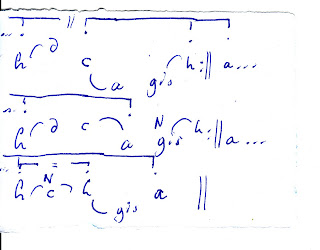 h d c a gis h :|| a ...
h d c a gis h :|| a ...
h c h gis a ||